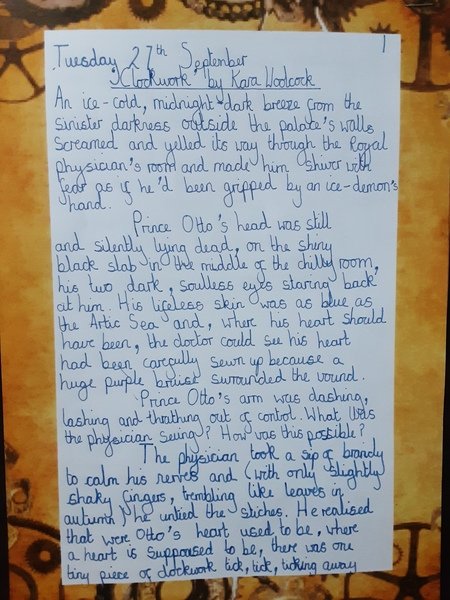 1
Tuesday 27th September
'Clockwork' by Kara Woolcock
An ice-cold, midnight-dark breeze from the
sinister darkness outside the palace's walls
screamed and yelled its way through the Royal
physician's room and made him shiver with
fear as if he'd been gripped by an ice-demon's
hand.
Prince Otto's head was still
and silently lying dead, on the shiny
black slab in the middle of the chilly room,
his two dark, soulless eyes staring back
at him. His lifeless skin was as blue as
the Artic Sea and, where his heart should
have been, the doctor could see his heart
had been carefully sewn up because a
huge purple bruise surrounded the wound.
Prince Otto's arm was dashing,
lashing and thrathing out of control. What was
the physician seeing? How was this possible?
The physician took a sip of brandy
to calm his nerves and (with only slightly
shaky fingers, trembling like leaves in
autumn) he untied the stiches. He realised
that were Otto's heart used to be, where
a heart is suppoused to be, there was one
tiny piece of clockwork tick, tick, ticking away